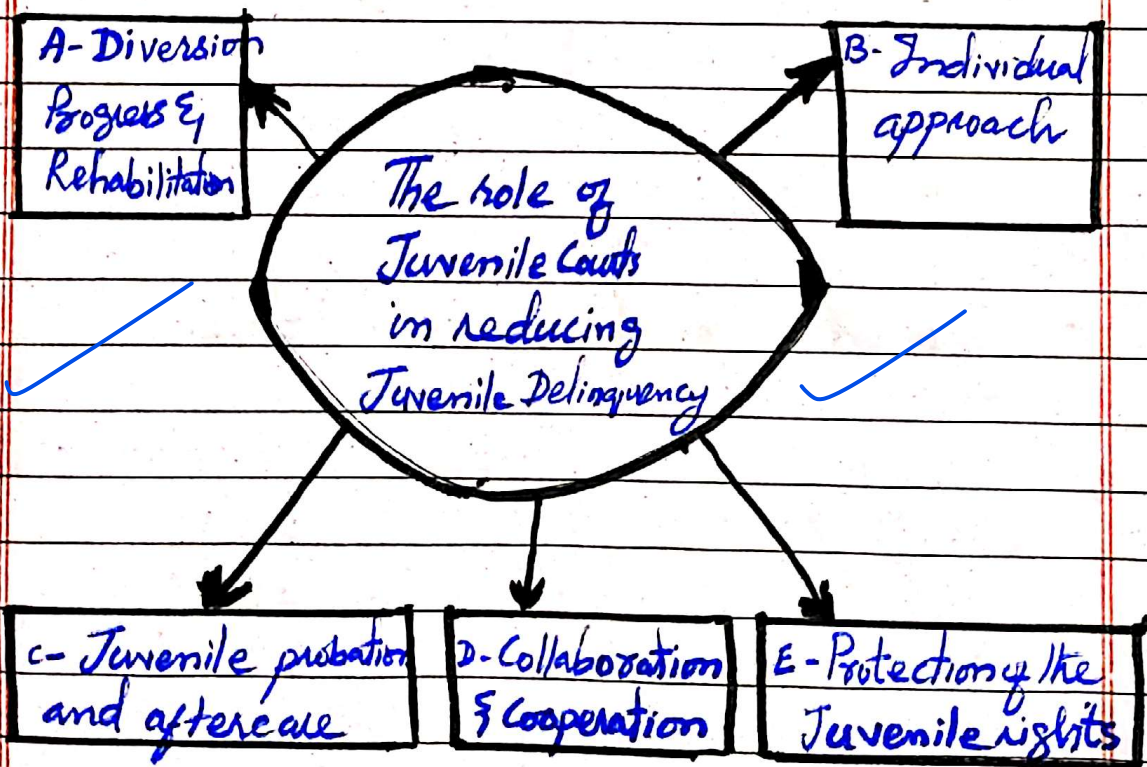 A- Diversion
Progress &
Rehabilitation
B- Individual
approach
The role of
Juvenile Courts
in reducing
Juvenile Delinquency
C- Juvenile probation
and aftercare
D- Collaboration
& Cooperation
E- Protection of the
Juvenile rights